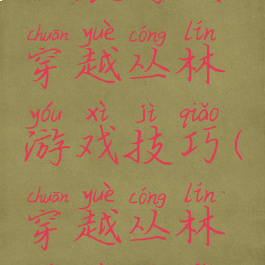 chuān yuè cóng lín
穿越丛林
yóu xì jì qiǎo
游戏技巧(
chuān yuè cóng lín
穿越丛林